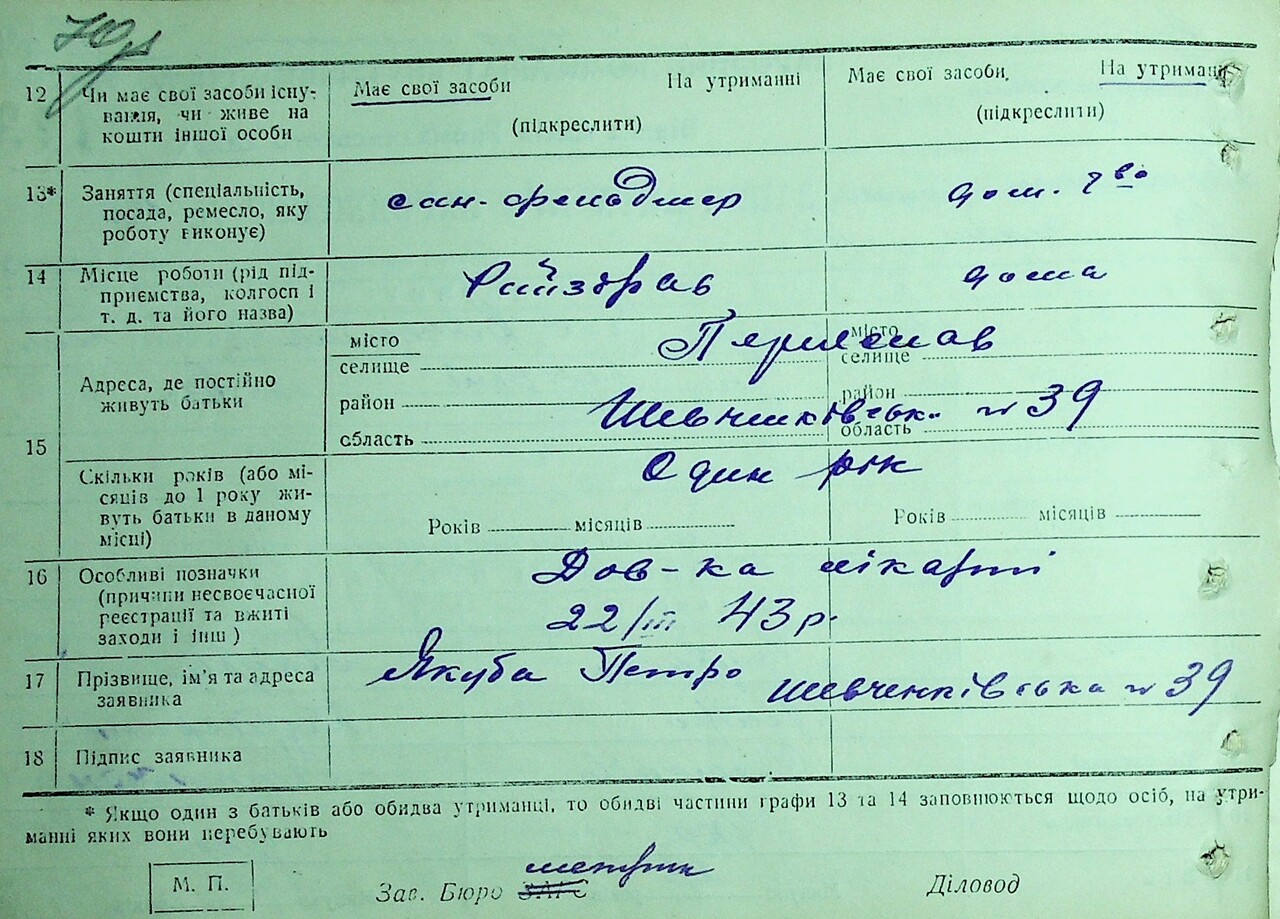 12 Чи має свої засоби існу-
вання, чи живе на
кошти іншої особи
Має свої засоби На утриманні
(підкреслити)
Має свої засоби На утриманні
(підкреслити)
13* Заняття (спеціальність,
посада, ремесло, яку
роботу виконує)
сан. фельдшер
дом. г-во
14 Місце роботи (рід під-
приємства, колгосп і
т. д. та його назва)
Райздрав
дома
15 Адреса, де постійно
живуть батьки
місто
селище
район
область
місто
селище
район
область
Переяслав
Шевченківськ. № 39
Скільки років (або мі-
сяців до 1 року жи-
вуть батьки в даному
місці)
Один рік
Років місяців
Років місяців
16 Особливі позначки
(причини несвоєчасної
реєстрації та вжиті
заходи і інш)
Дов-ка лікарні
22/III 43 р.
17 Прізвище, ім'я та адреса
заявника
Якуба Петро Шевченківська № 39
18 Підпис заявника
* Якщо один з батьків або обидва утриманці, то обидві частини графи 13 та 14 заповнюються щодо осіб, на утри-
манні яких вони перебувають
М. П.
метрик
Зав. Бюро ЗАГС
Діловод